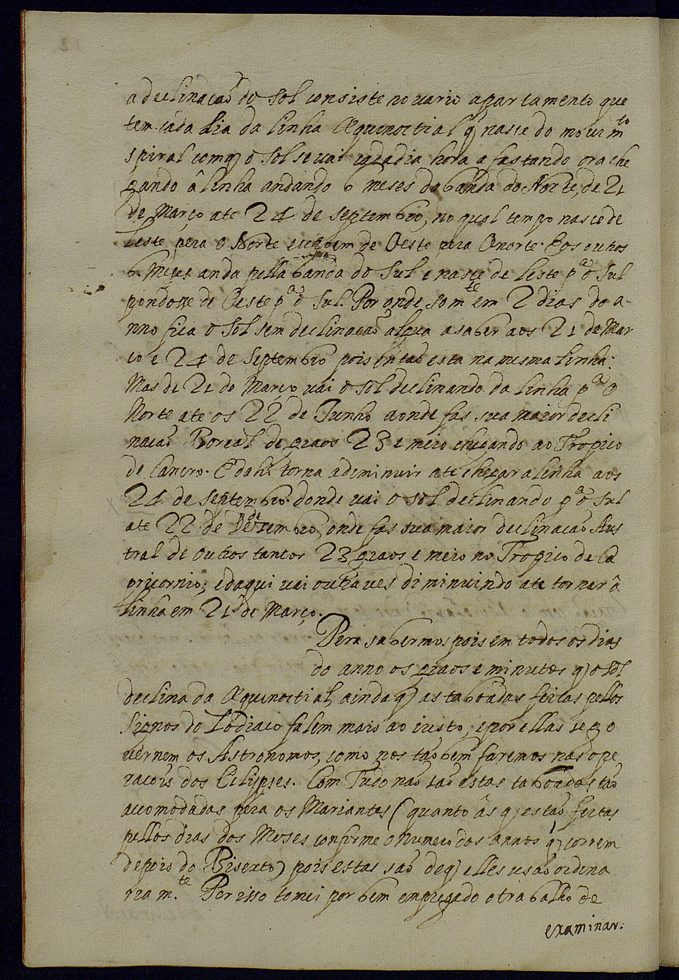 a declinacaõ do sol consiste no vario apartamento que
tem cada dia da linha Æquinoctial q nasce do movim.to
spiral com q o sol se vai cada dia hora afastando ora che
gando â linha andando 6 meses da banda do Norte, de 21
de Março ate 24 de septembro, no qual tempo nasce de
Leste pera o Norte e se poem de Oeste pera o norte. E os outros
6 Mezes anda pella banda do Sul e nasce de Leste p.a o Sul
pondosse de Oeste p.a o Sul. Por onde som.te em 2 dias do a-
nno fica o Sol sem declinacaõ algũa a saber aos 21 de Mar
co e 24 de Septembro pois entaõ esta na mesma linha:
Mas de 21 de Março vai o sol declinando da linha p.a o
Norte ate os 22 de Junho aonde fas sua maior decli
nacaõ Boreal de graos 23 e meio chegando ao Tropico
de Cancro. E dahi torna a deminuir ate chegar a linha aos
24 de septembro. donde vai o sol declinando p.a o Sul
ate 22 de Dezembro, onde fas sua maior declinacaõ Aus
tral de outros tantos 23 graos e meio no Tropico de Ca
pricornio; e daqui vai outra ves diminuindo ate tornar â
linha em 21 de Março.
Pera sabermos pois em todos os dias
do anno os graos e minutos q o sol
declina da Æquinoctial, ainda q as taboadas feitas pellos
Signos do Zodiaco falem mais ao iusto, e por ellas se go
vernem os Astronomos, como nos tãobem faremos nas ope
racois dos Eclipses. Com Tudo naõ saõ estas taboadas taõ
acomodadas pera os Mariantes (quanto âs q estaõ feitas
pellos dias dos Meses conforme o Numero dos annos q correm
depois do Bisexto) pois estas saõ de q elles usaõ ordina
ria m.te Por isso tomei por bem empregado o trabalho de
examinar: